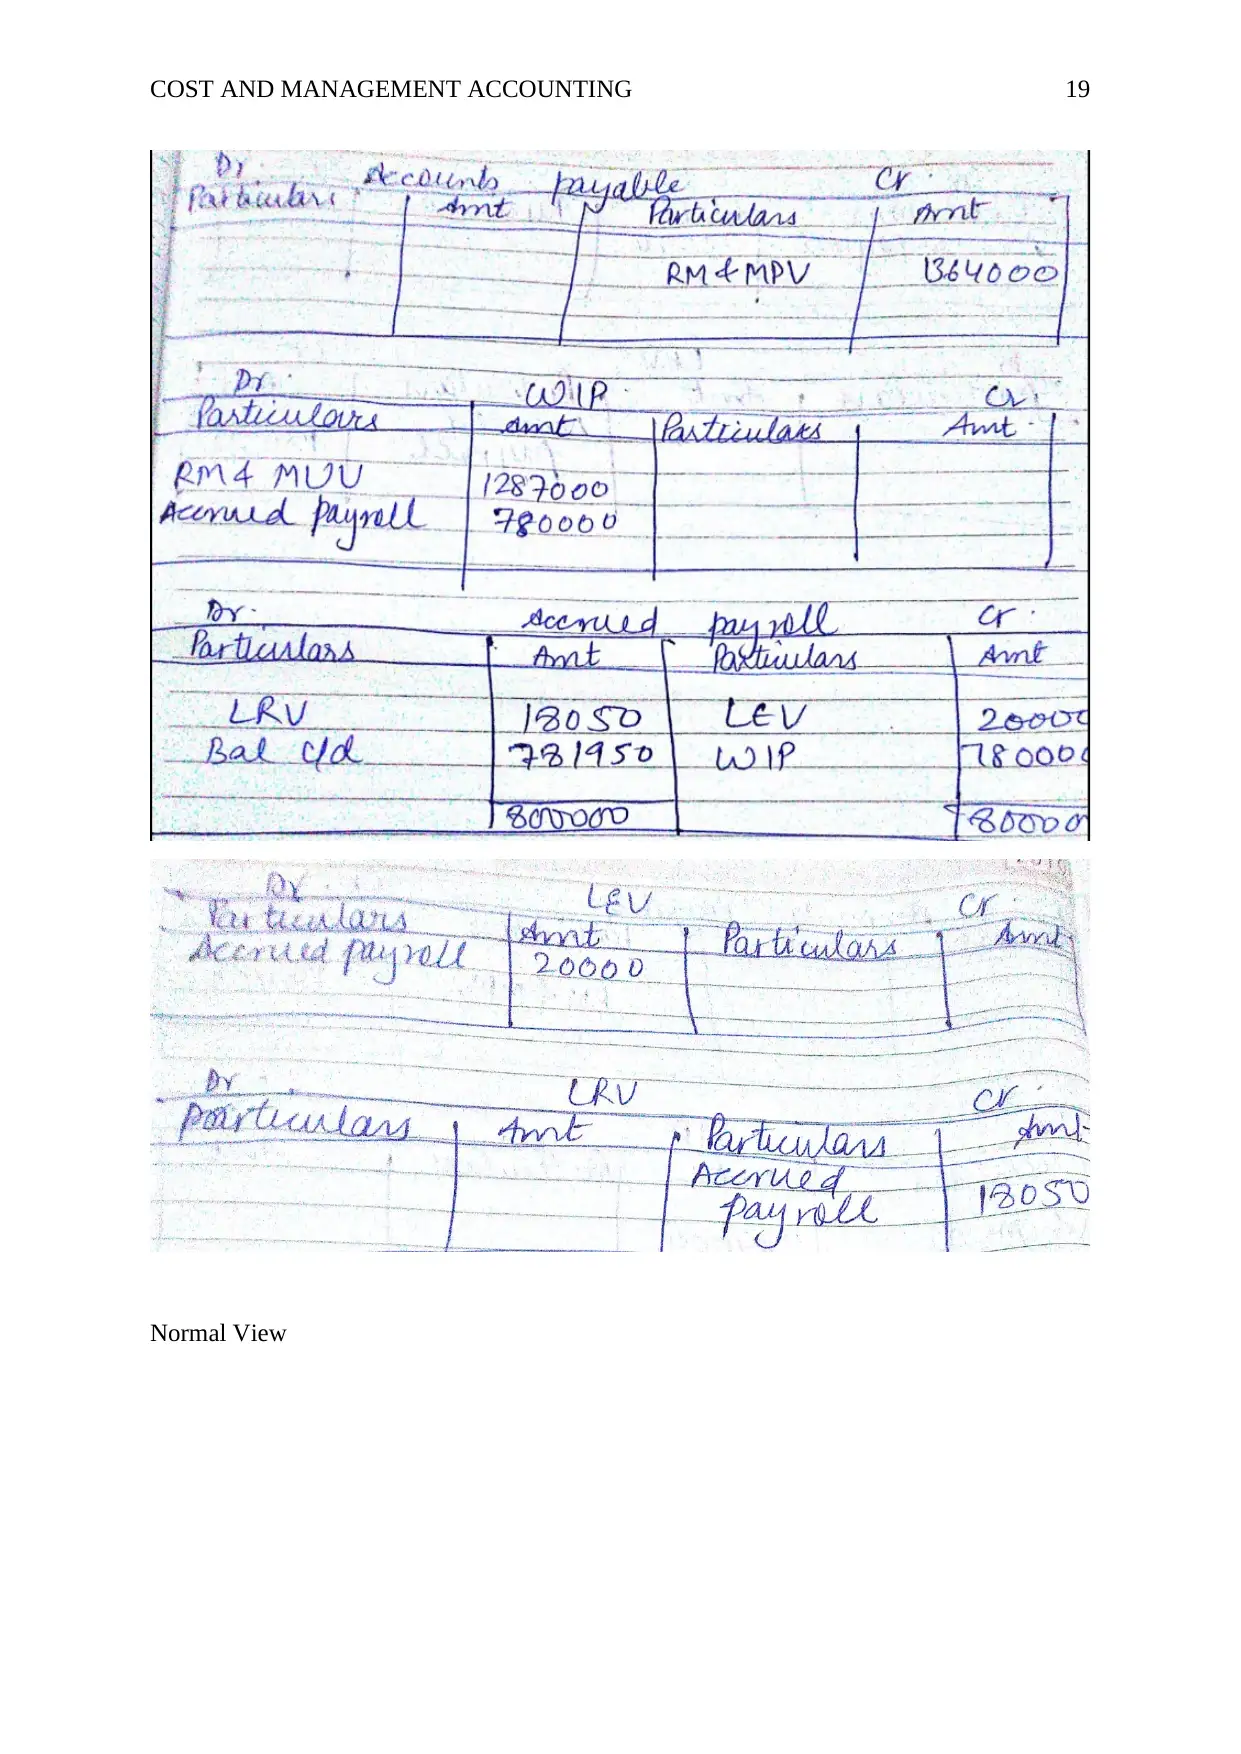 COST AND MANAGEMENT ACCOUNTING 19
Dr Accounts payable Cr
Particulars Amt Particulars Amt
RM & MPV 1364000
Dr. WIP Cr
Particulars Amt Particulars Amt
RM & MUV 1287000
Accrued payroll 780000
Dr. Accrued payroll Cr
Particulars Amt Particulars Amt
LRV 18050 LEV 20000
Bal c/d 781950 WIP 780000
800000 80000
Dr LEV Cr
Particulars Amt Particulars Amt
Accrued payroll 20000
Dr LRV Cr
Particulars Amt Particulars Amt
Accrued
payroll 18050
Normal View